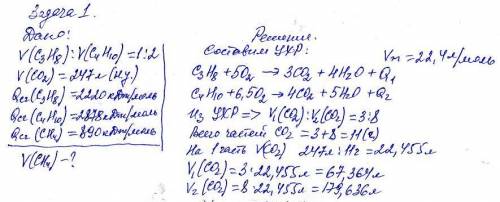 Задача 1.
Дано:
V(C3H8):V(C4H10)=1:2
V(CO2)=247л(н.у.)
Qсг(C3H8)=2220кДж/моль
Qсг(C4H10)=2878кДж/моль
Qсг(CH4)=890кДж/моль
V(CH4)-?
Решение.
Составим УХР:
Vm=22,4л/моль
C3H8+5O2→3CO2+4H2O+Q1
C4H10+6,5O2→4CO2+5H2O+Q2
Из УХР => V1(CO2):V2(CO2)=3:8
Всего частей CO2=3+8=11(ч)
На 1 часть V(CO2) 247л:11ч=22,455л
V1(CO2)=3·22,455л=67,364л
V2(CO2)=8·22,455л=179,636л